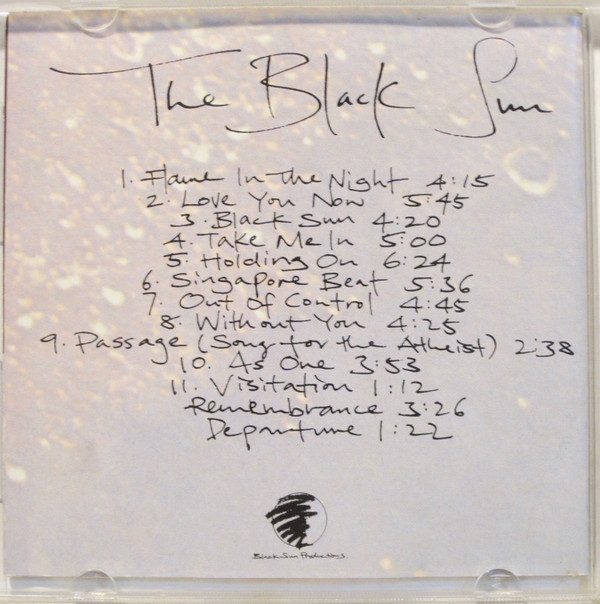 The Black Sun
1. Flame In the Night 4:15
2. Love You Now 5:45
3. Black Sun 4:20
4. Take Me In 5:00
5. Holding On 6:24
6. Singapore Beat 5:36
7. Out Of Control 4:45
8. Without You 4:25
9. Passage (Song for the Atheist) 2:38
10. As One 3:53
11. Visitation 1:12
Remembrance 3:26
Departure 1:22
Black Sun Productions